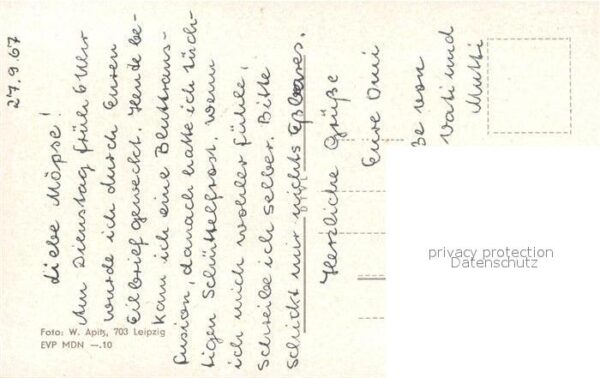 27.9.67
Liebe Möpse!
Am Dienstag früh 6 Uhr
wurde ich durch Euren
Eilbrief geweckt. Heute be-
kam ich eine Bluttrans-
fusion, danach hatte ich tüch-
tigen Schüttelfrost. Wenn
ich mich wohler fühle,
schreibe ich selber. Bitte
schickt mir nichts Eßbares.
Herzliche Grüße
Eure Omi
ße von
Vati und
Mutti
Foto: W. Apitz, 703 Leipzig
EVP MDN —.10
privacy protection
Datenschutz